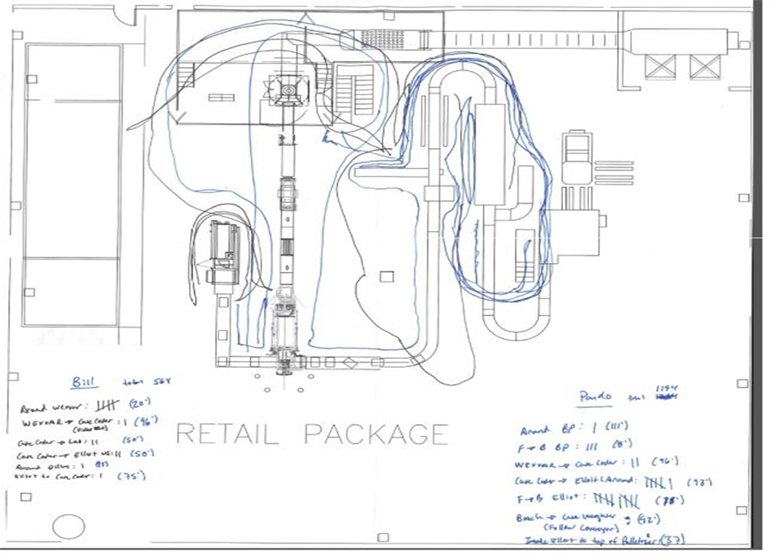 Bill total 568
Around Wexxar: (20')
WEXXAR → Case Coder : | (96')
Case Coder → Lab : || (50')
Case Coder → Elliot (50')
Around Elliot : |
Elliot to Case Coder : | (75')
RETAIL PACKAGE
Pando 1194
Around BP: | (111')
F→B BP: ||| (8')
WEXXAR → Case Coder : || (96')
Case Coder → Elliot (Around:
F→B Elliot:
Case Weigher (52')
(Follow Conveyor)
Inside Elliot to top of Palletizer: (37)